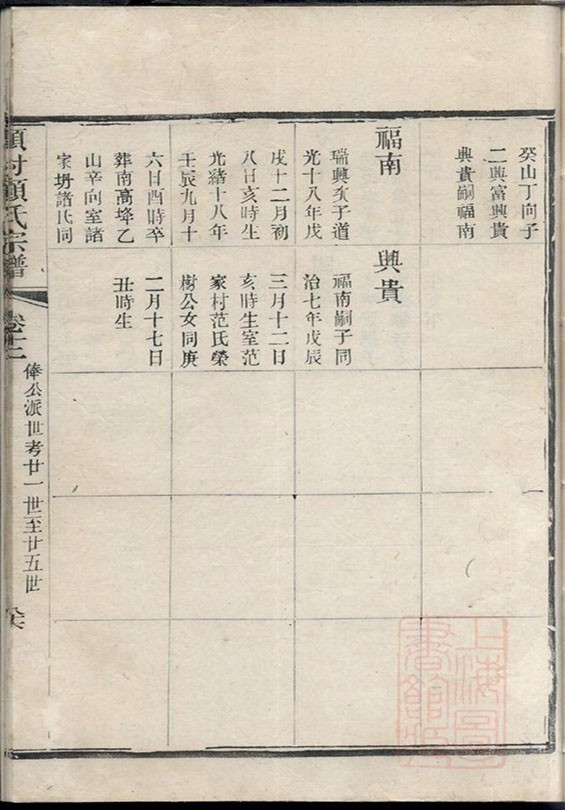 癸山丁向子
二興富興貴
興貴嗣福南
福南
瑞興次子道
光十八年戊
戌十二月初
八日亥時生
光緒十八年
壬辰九月十
六日酉時卒
葬南高垾乙
山辛向室諸
家坍諸氏同
興貴
福南嗣子同
治七年戊辰
三月十二日
亥時生室范
家村范氏榮
樹公女同庚
二月十七日
丑時生
顧氏宗譜
卷十二
俸公派世考廿一世至廿五世
上海圖書館藏